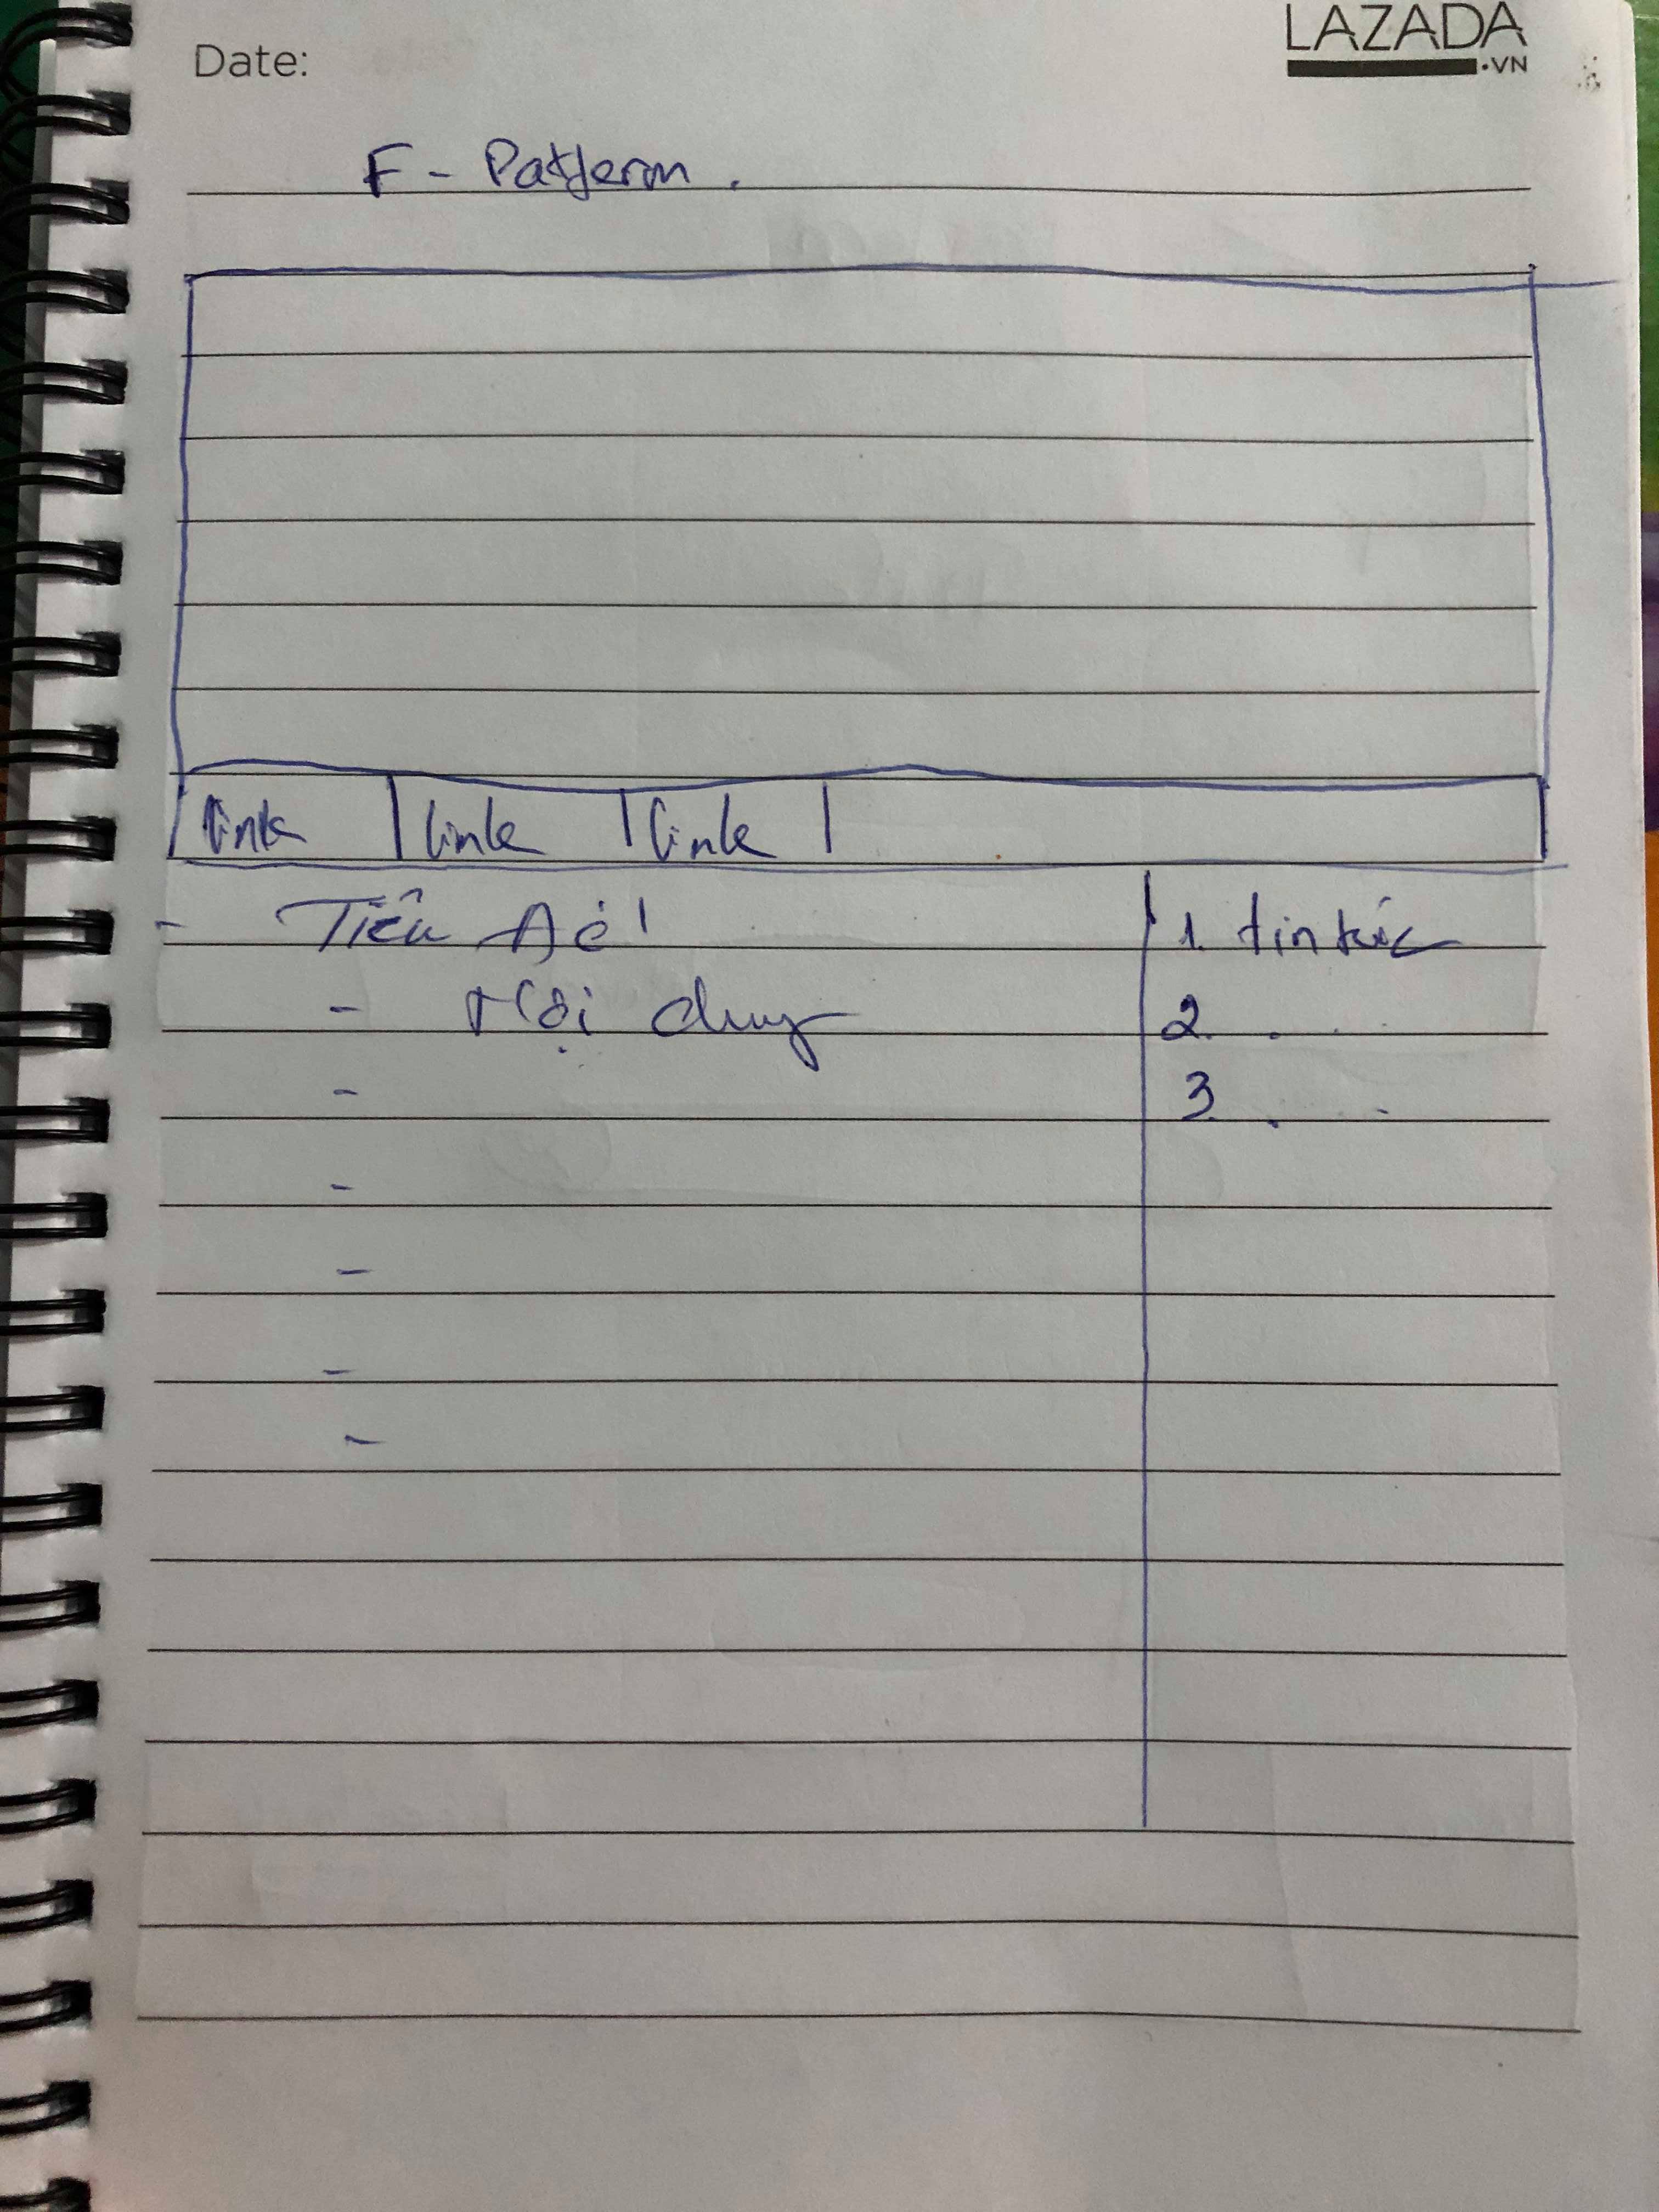 Date:
LAZADA
.VN
F - Pattern.
link | link | link |
- Tiêu đề 1
- Nội dung
-
-
-
-
-
1. tin tức
2. . .
3. . .